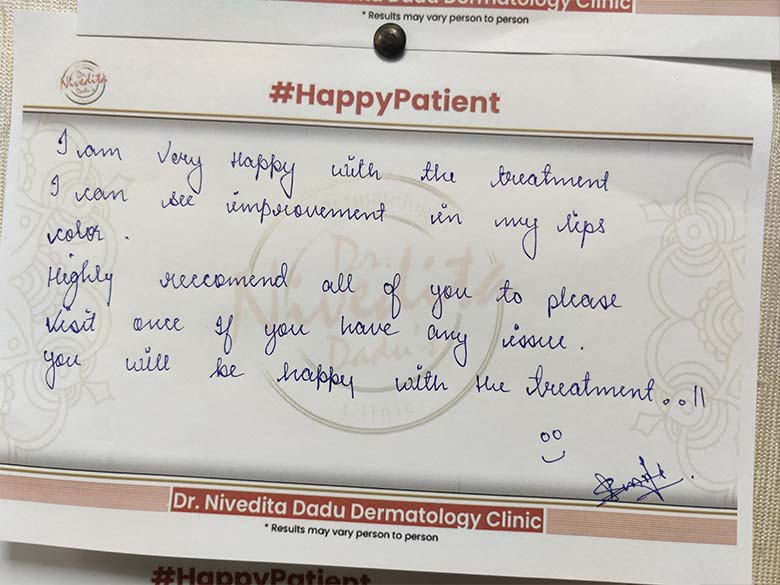 Nivedita Dadu Dermatology Clinic
* Results may vary person to person
Dr.
Nivedita
Dadu's
#HappyPatient
I am very Happy with the treatment
I can see improvement in my lips
color.
Highly reccomend all of you to please
visit once If you have any issue.
you will be happy with the treatment..!!
Dr.
Nivedita
Dadu's
Clinic
Dr. Nivedita Dadu Dermatology Clinic
* Results may vary person to person
#HappyPatient